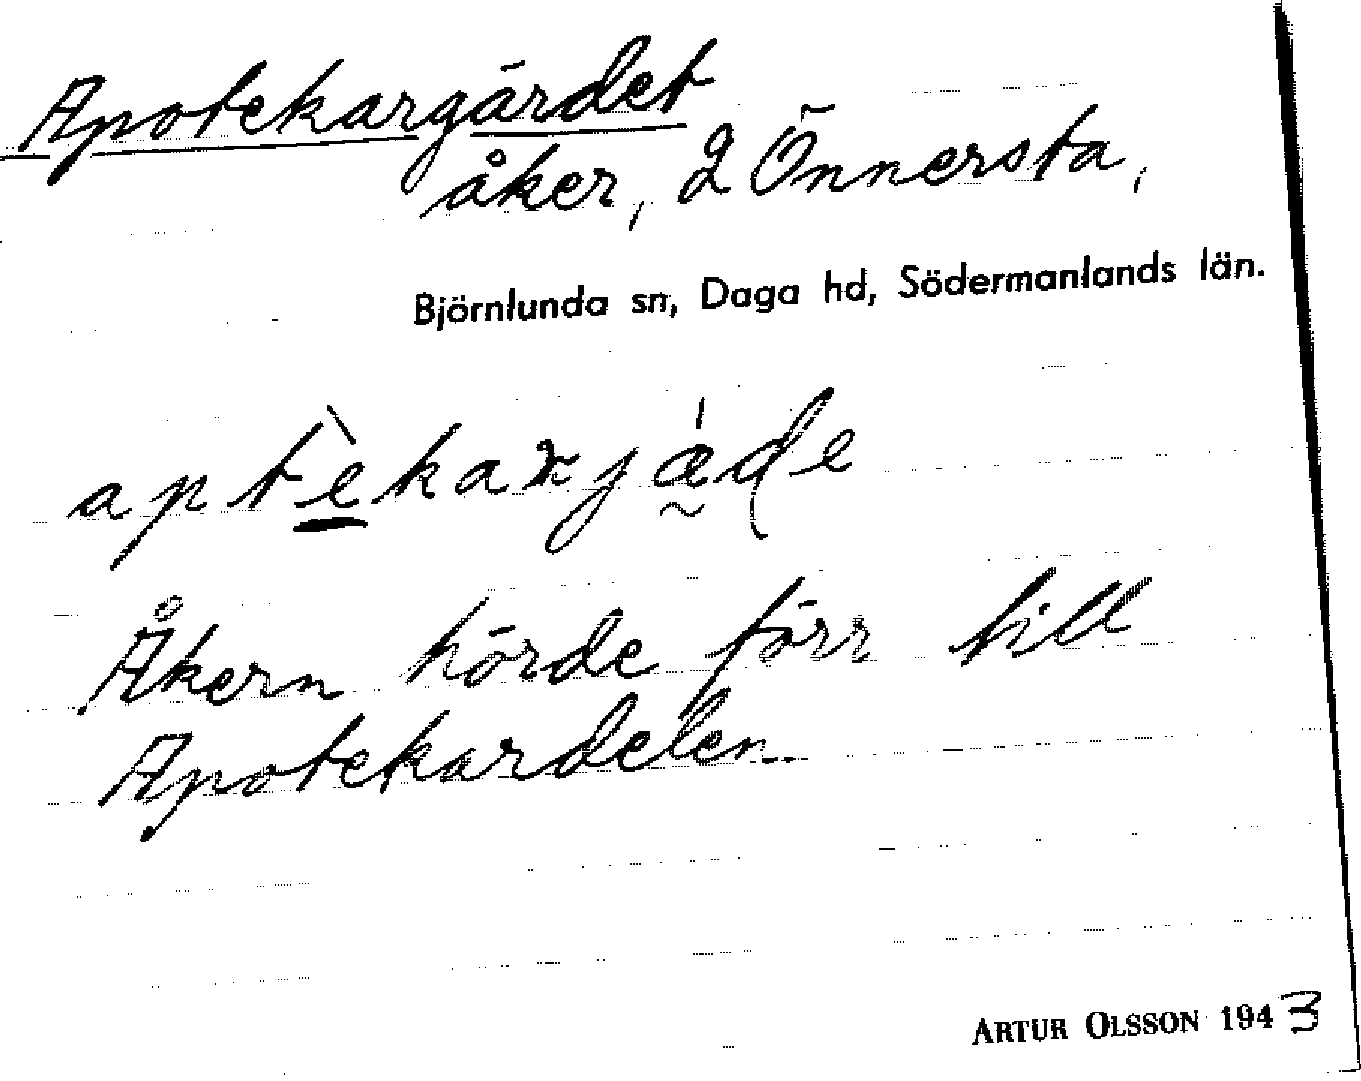 Apotekargärdet
åker, 2 Önnersta,
Björnlunda sn, Daga hd, Södermanlands län.
Åkern hörde förr till
Apotekardelen.
ARTUR OLSSON 1943